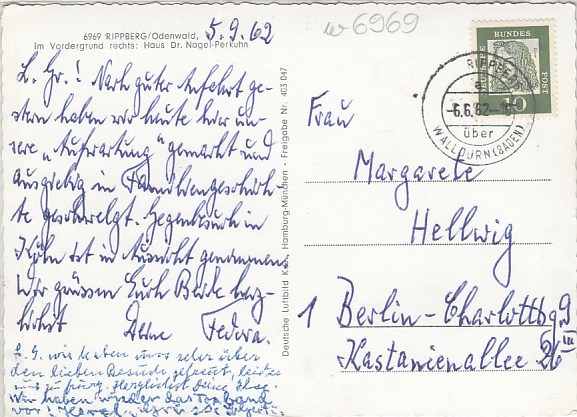 6969 RIPPBERG/Odenwald,
Im Vordergrund rechts: Haus Dr. Nagel-Perkuhn
5.9.62
6969
L. Gr.! Nach guter Anfahrt ge-
stern haben wir heute hier un-
sere „Aufwartung" gemacht und
ausgiebig in Familiengeschich-
te geschwelgt. Gegenbesuch in
Köln ist in Aussicht genommen.
Wir grüssen Euch Beide herz-
lichst Deine Fedora.
wir haben uns sehr über
den lieben Besuch gefreut, leider
zu kurz. Herzlichst Deine Else.
Wir haben wieder das
Deutsche Luftbild K.G., Hamburg-München - Freigabe Nr. 403 047
DEUTSCHE BUNDESPOST
10
RIPPBERG
a
-6.6.62-
über
WALLDÜRN (BADEN)
Frau
Margarete
Hellwig
1 Berlin-Charlottbg 9
Kastanienallee 26 III